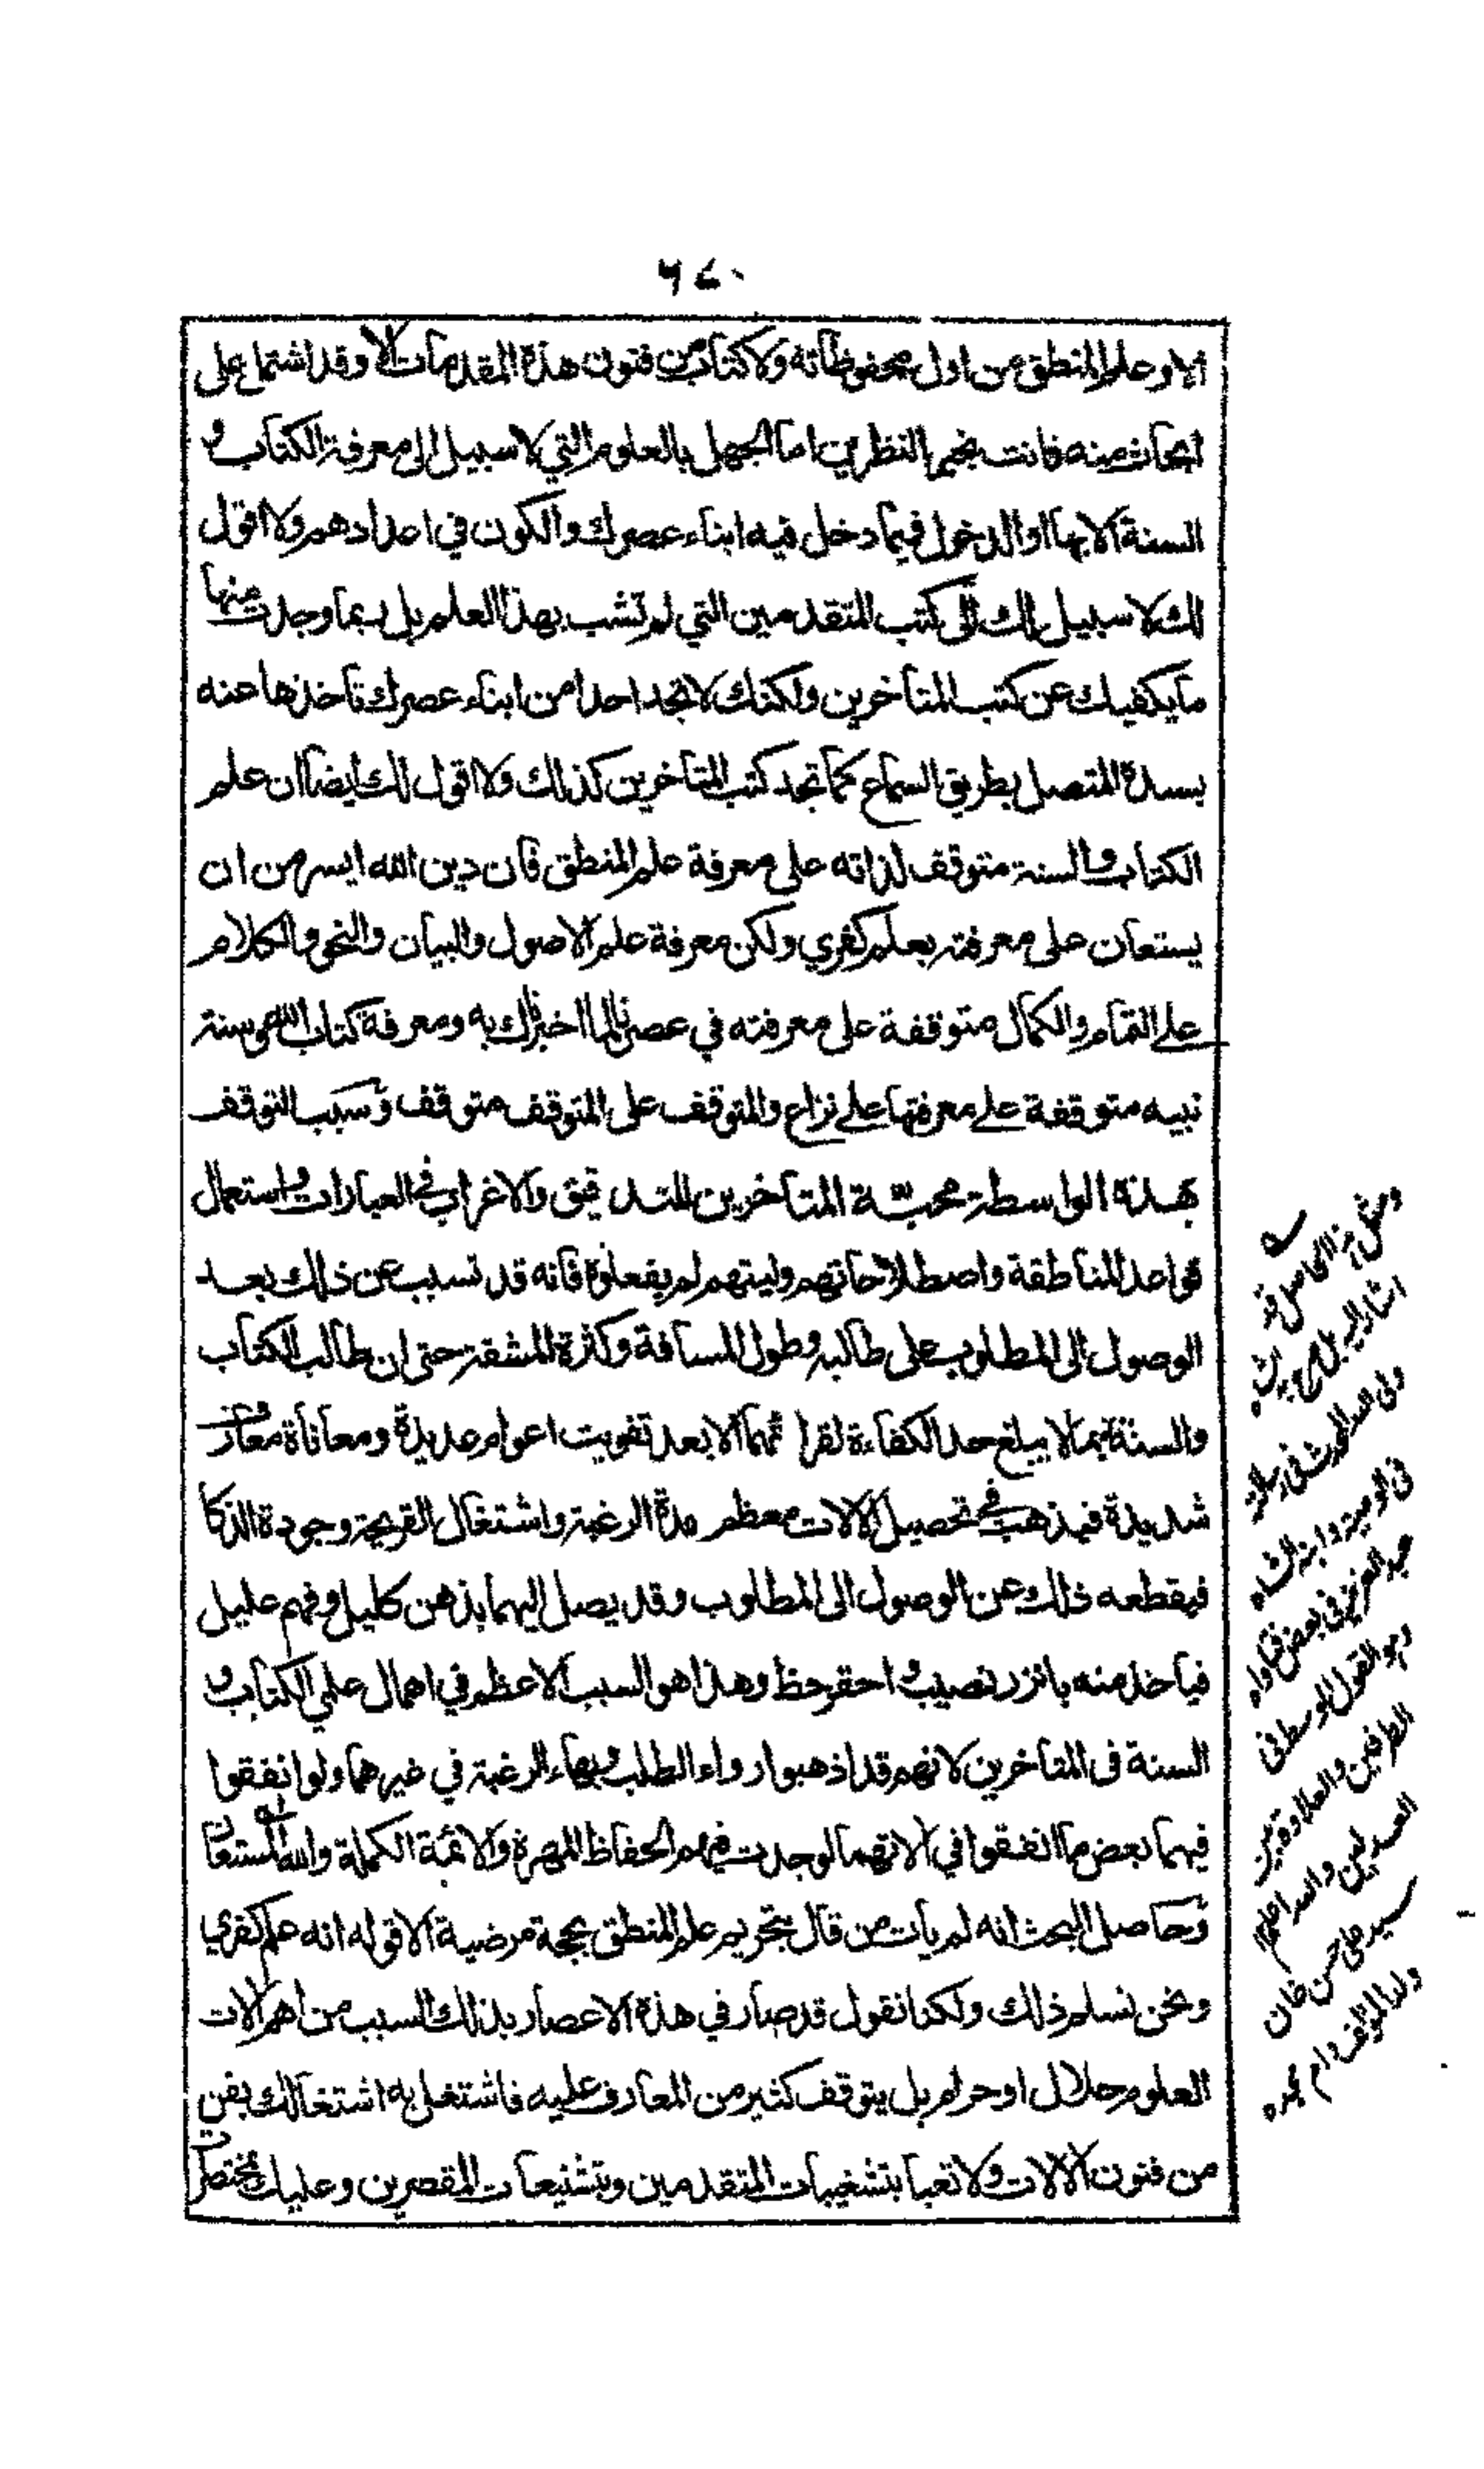 ٦٤٠
الا وعلم المنطق من اول محفوظاته ولا كتاب من فنون هذة المقدمات الا وقد اشتمل على
ابحاث منه فانت بخير النظرين اما الجهل بالعلوم التي لا سبيل الى معرفة الكتاب و
السنة الا بها او الدخول فيما دخل فيه ابناء عصرك والكون في اعدادهم ولا اقول
لك لا سبيل لك الى كتب المتقدمين التي لم تشب بهذا العلم بل ربما وجدت منها
ما يكفيك عن كتب المتأخرين ولكنك لا تجد احدا من ابناء عصرك تأخذها عنه
بسنده المتصل بطريق السماع كما تجد كتب المتأخرين كذلك ولا اقول لك ايضا ان علم
الكتاب والسنة متوقف لذاته على معرفة علم المنطق فان دين الله ايسر من ان
يستعان على معرفته بعلم كفري ولكن معرفة علم الاصول والبيان والنحو والكلام
على التمام والكمال متوقفة على معرفته في عصرنا لما اخبرناك به ومعرفة كتاب الله وسنة
نبيه متوقفة على معرفتها على نزاع والمتوقف على المتوقف متوقف وسبب التوقف
بهذه الواسطة محبّة المتأخرين للتدقيق والاغراب في العبارات واستعمال
قواعد المناطقة واصطلاحاتهم وليتهم لم يفعلوة فانه قد تسبب عن ذلك بعد
الوصول الى المطلوب على طالبه وطول المسافة وكثرة المشقة حتى ان طالب الكتاب
والسنة ربما لا يبلغ حد الكفاءة لقرا ئتهما الا بعد تفويت اعوام عديدة ومعاناة معارف
شديدة فيذهب في تحصيل الالات معظم مدة الرغبة واشتغال القريحة وجودة الذكا
فيقطعه ذلك عن الوصول الى المطلوب وقد يصل اليهما بذهن كليل وفهم عليل
فيأخذ منه بانزر نصيب واحقر حظ وهذا هو السبب الاعظم في اهمال علمي الكتاب و
السنة فى المتأخرين لانهم قد اذهبوا رواء الطلب وبهاء الرغبة في غيرهما ولو انفقوا
فيهما بعض ما انفقوا في الاتهما لوجدت فيهم الحفاظ المهرة والائمة الكملة والله المستعان
وحاصل البحث انه لم يأت من قال بتحريم علم المنطق بحجة مرضية الا قوله انه علم كفري
ونحن نسلم ذلك ولكنا نقول قد صار في هذة الاعصار بذلك السبب من اهم الات
العلوم حلال او حرام بل يتوقف كثير من المعارف عليه فاشتغل به اشتغالك بفن
من فنون الالات ولا تعبأ بتشغيبات المتقدمين وبتشنيعات المقصرين وعليك بمختصرات
ومثل هذا الحاصل قد
اشار اليه
فى الوصية وابنه الشاه
عبد العزيز فى بعض فتاواه
وهو القول الوسط فى
الطرفين والعلاوة بين
العدلين والله اعلم
سيد على حسن خان
ولد المؤلف دام مجده